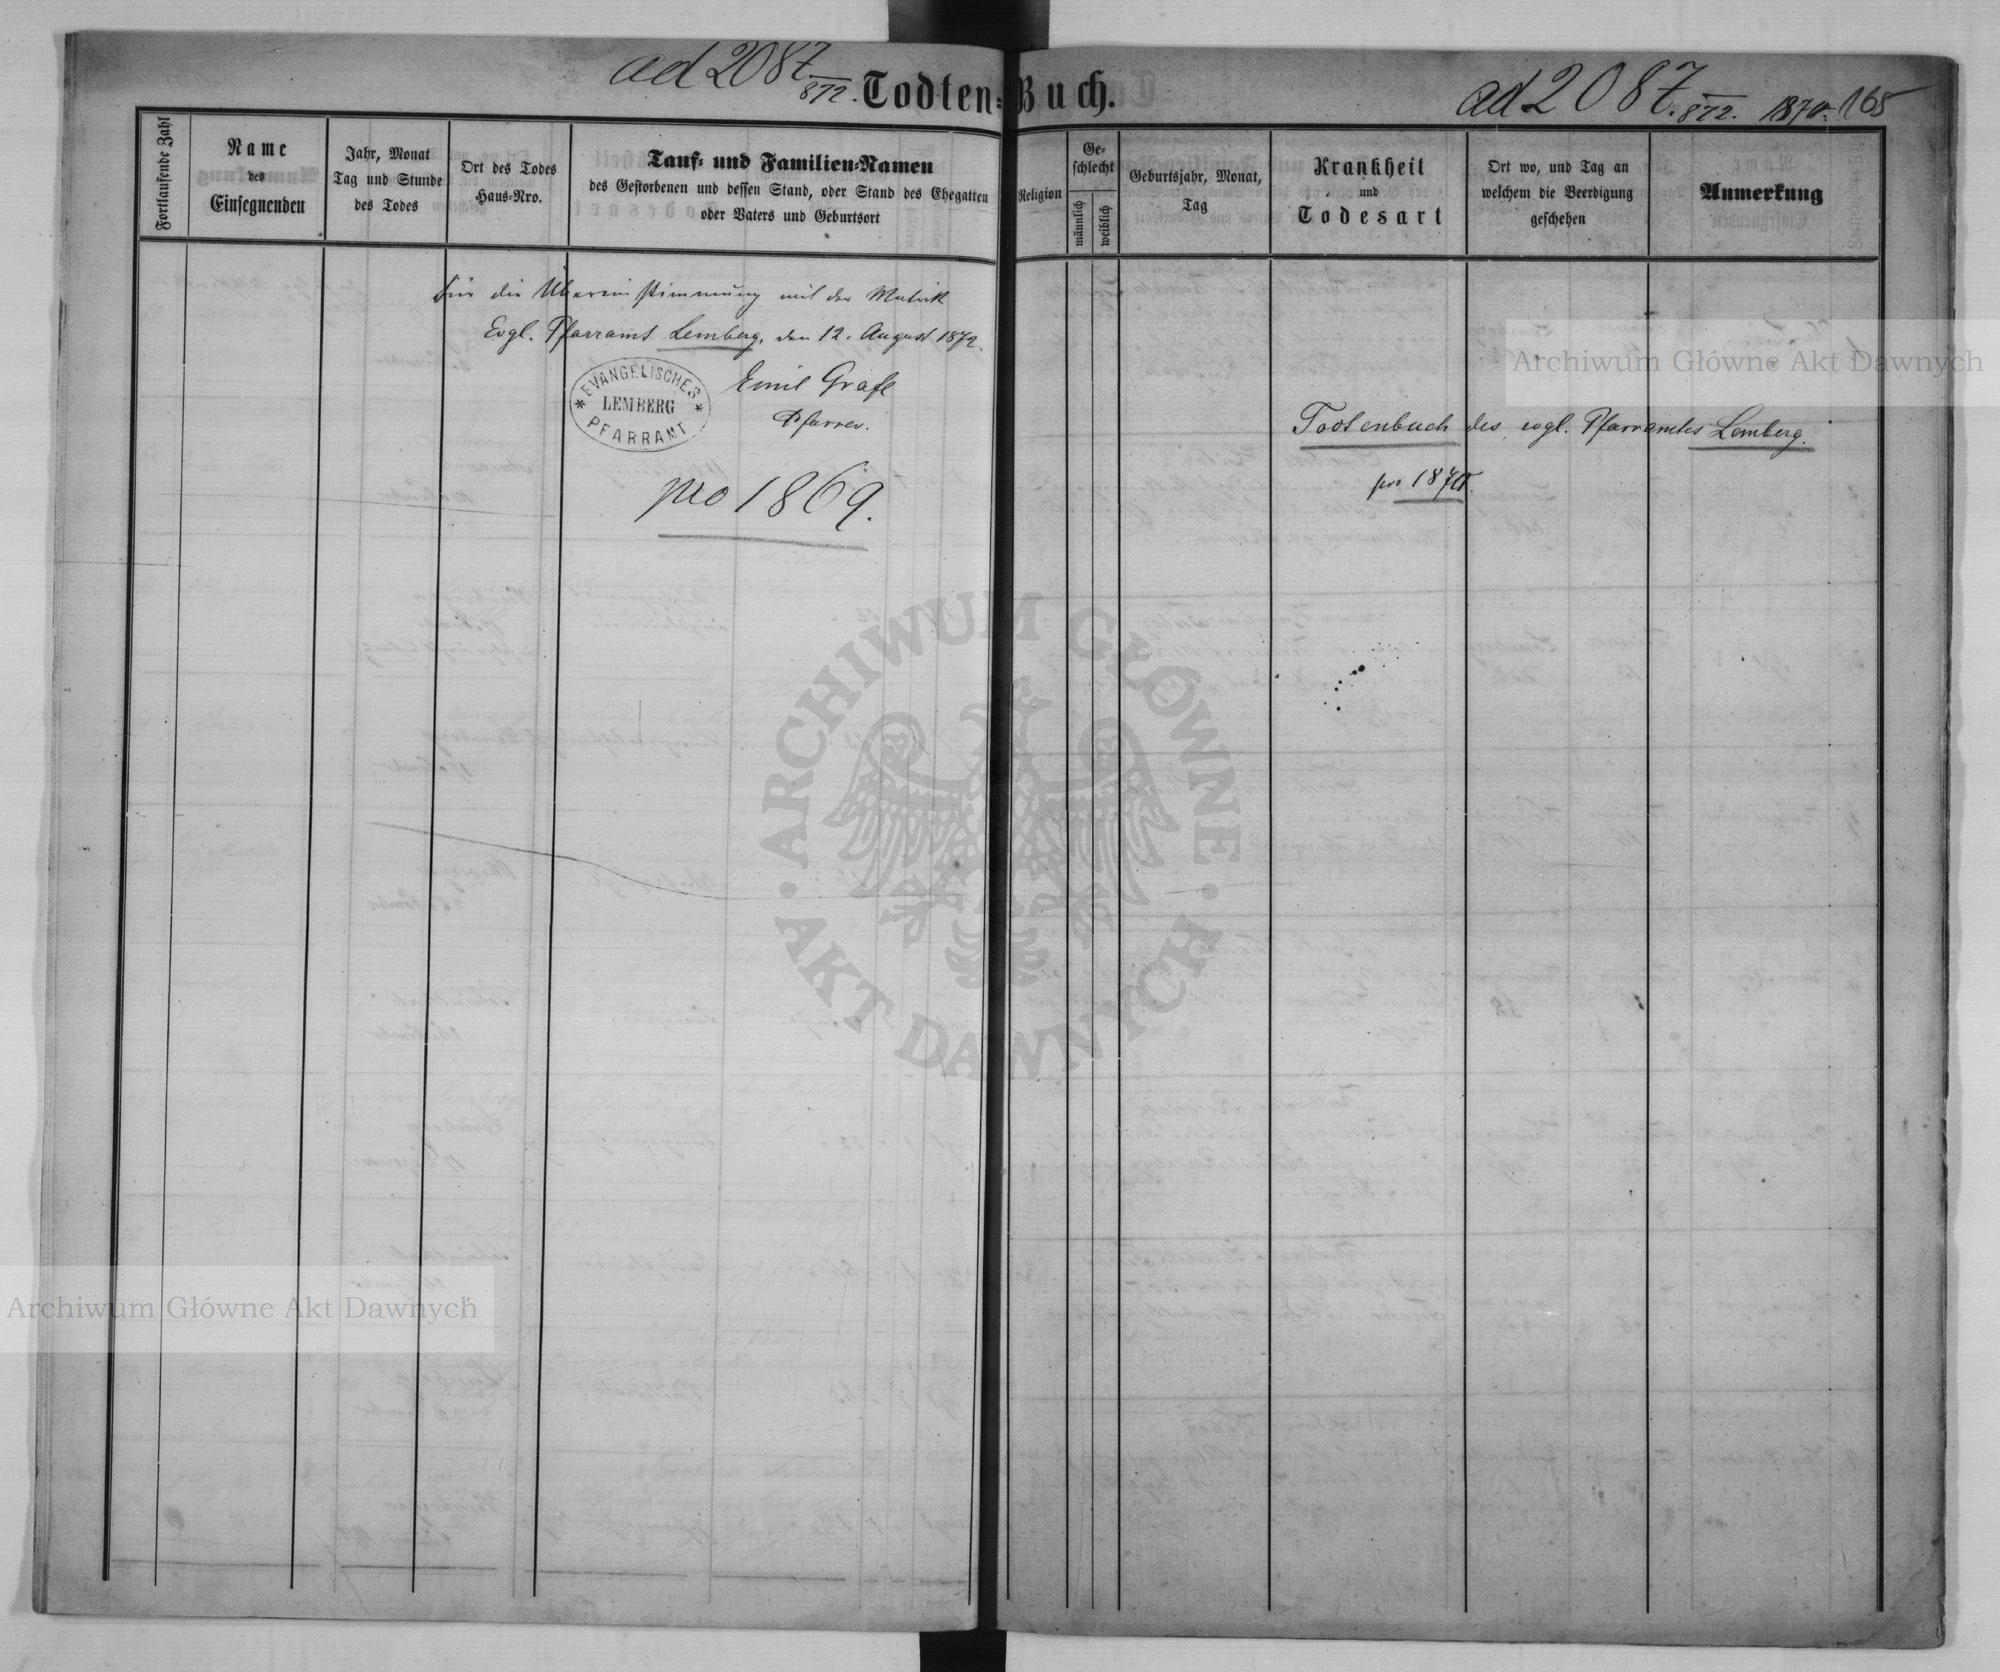 ad 2087/872.
Todten-Buch.
ad 2087./872. 1870. 165
Fortlaufende Zahl
Name
des
Einsegnenden
Jahr, Monat
Tag und Stunde
des Todes
Ort des Todes
Haus-Nro.
Tauf- und Familien-Namen
des Gestorbenen und dessen Stand, oder Stand des Ehegatten
oder Vaters und Geburtsort
Religion
Ge-
schlecht
männlich
weiblich
Geburtsjahr, Monat,
Tag
Krankheit
und
Todesart
Ort wo, und Tag an
welchem die Beerdigung
geschehen
Anmerkung
Für die Übereinstimmung mit der Matrik
Evgl. Pfarramt Lemberg, den 12. August 1872.
EVANGELISCHES
LEMBERG
PFARRAMT
Emil Grafe
Pfarrer.
pro 1869.
Todtenbuch des evgl. Pfarramtes Lemberg.
pro 1870.
Archiwum Główne Akt Dawnych
ARCHIWUM GŁÓWNE
AKT DAWNYCH
Archiwum Główne Akt Dawnych